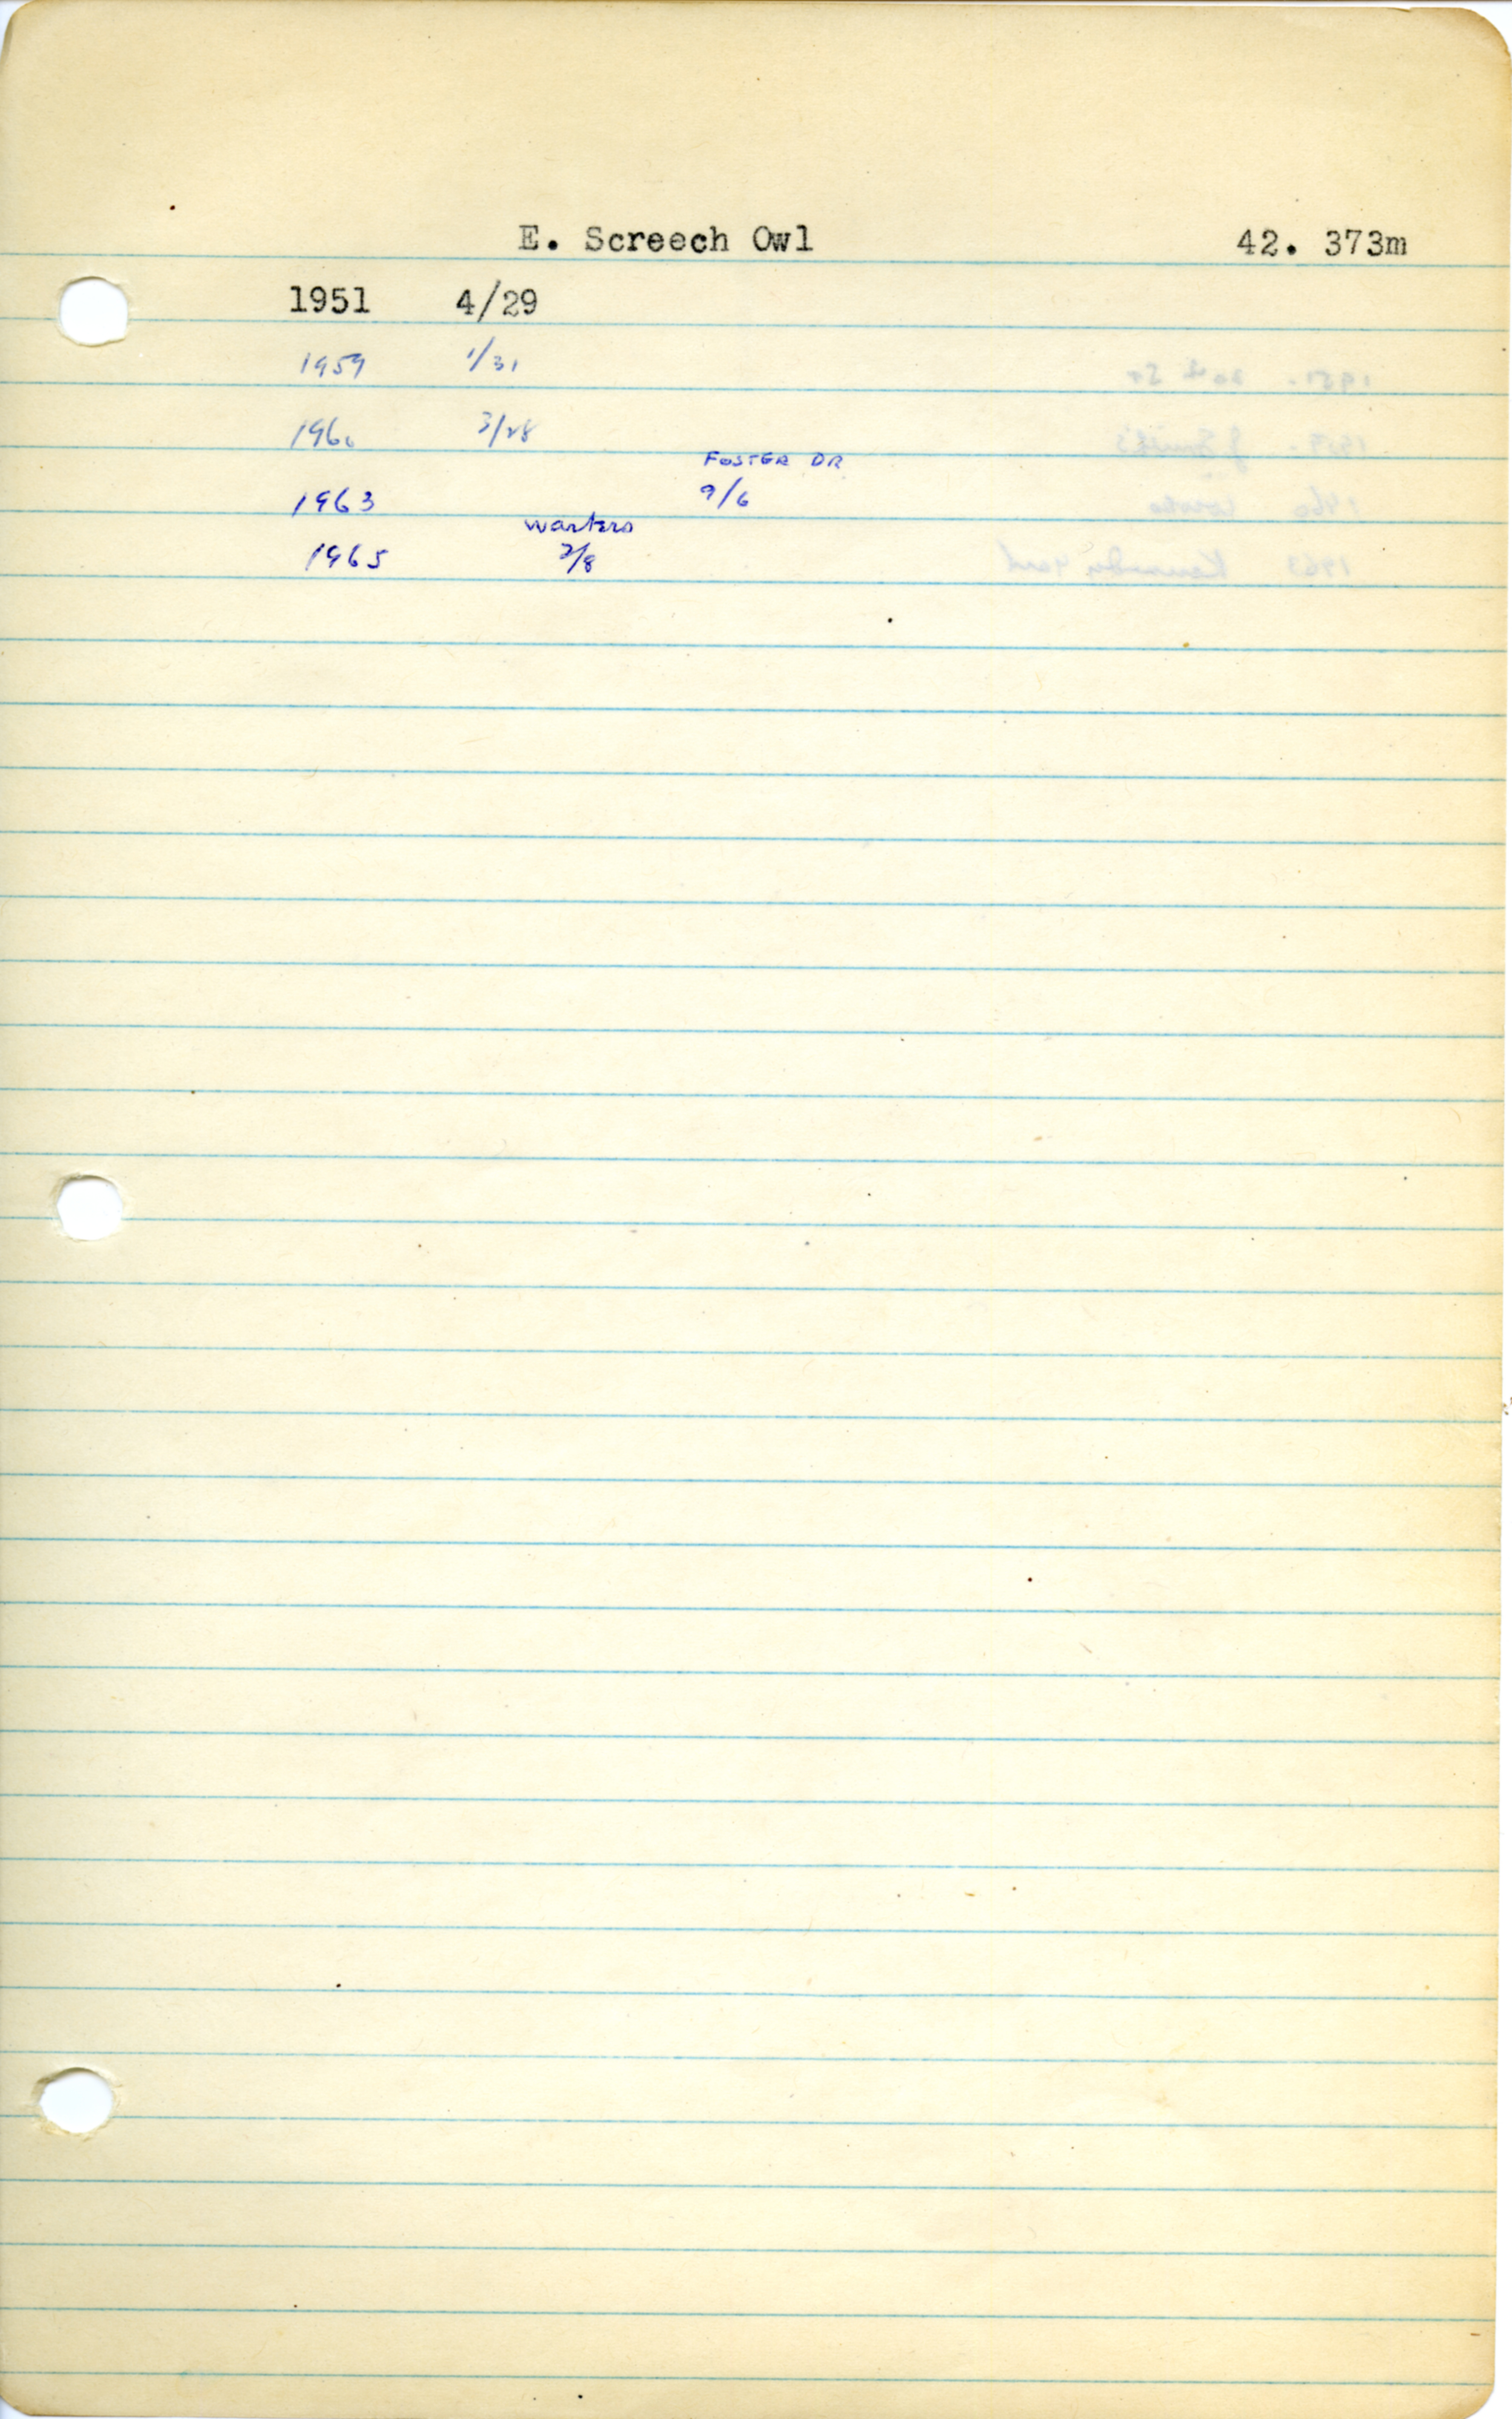 E. Screech Owl 42. 373m
1951 4/29
1959 1/31
1960 3/28
FOSTER DR
1963 9/6
warters
1965 3/8